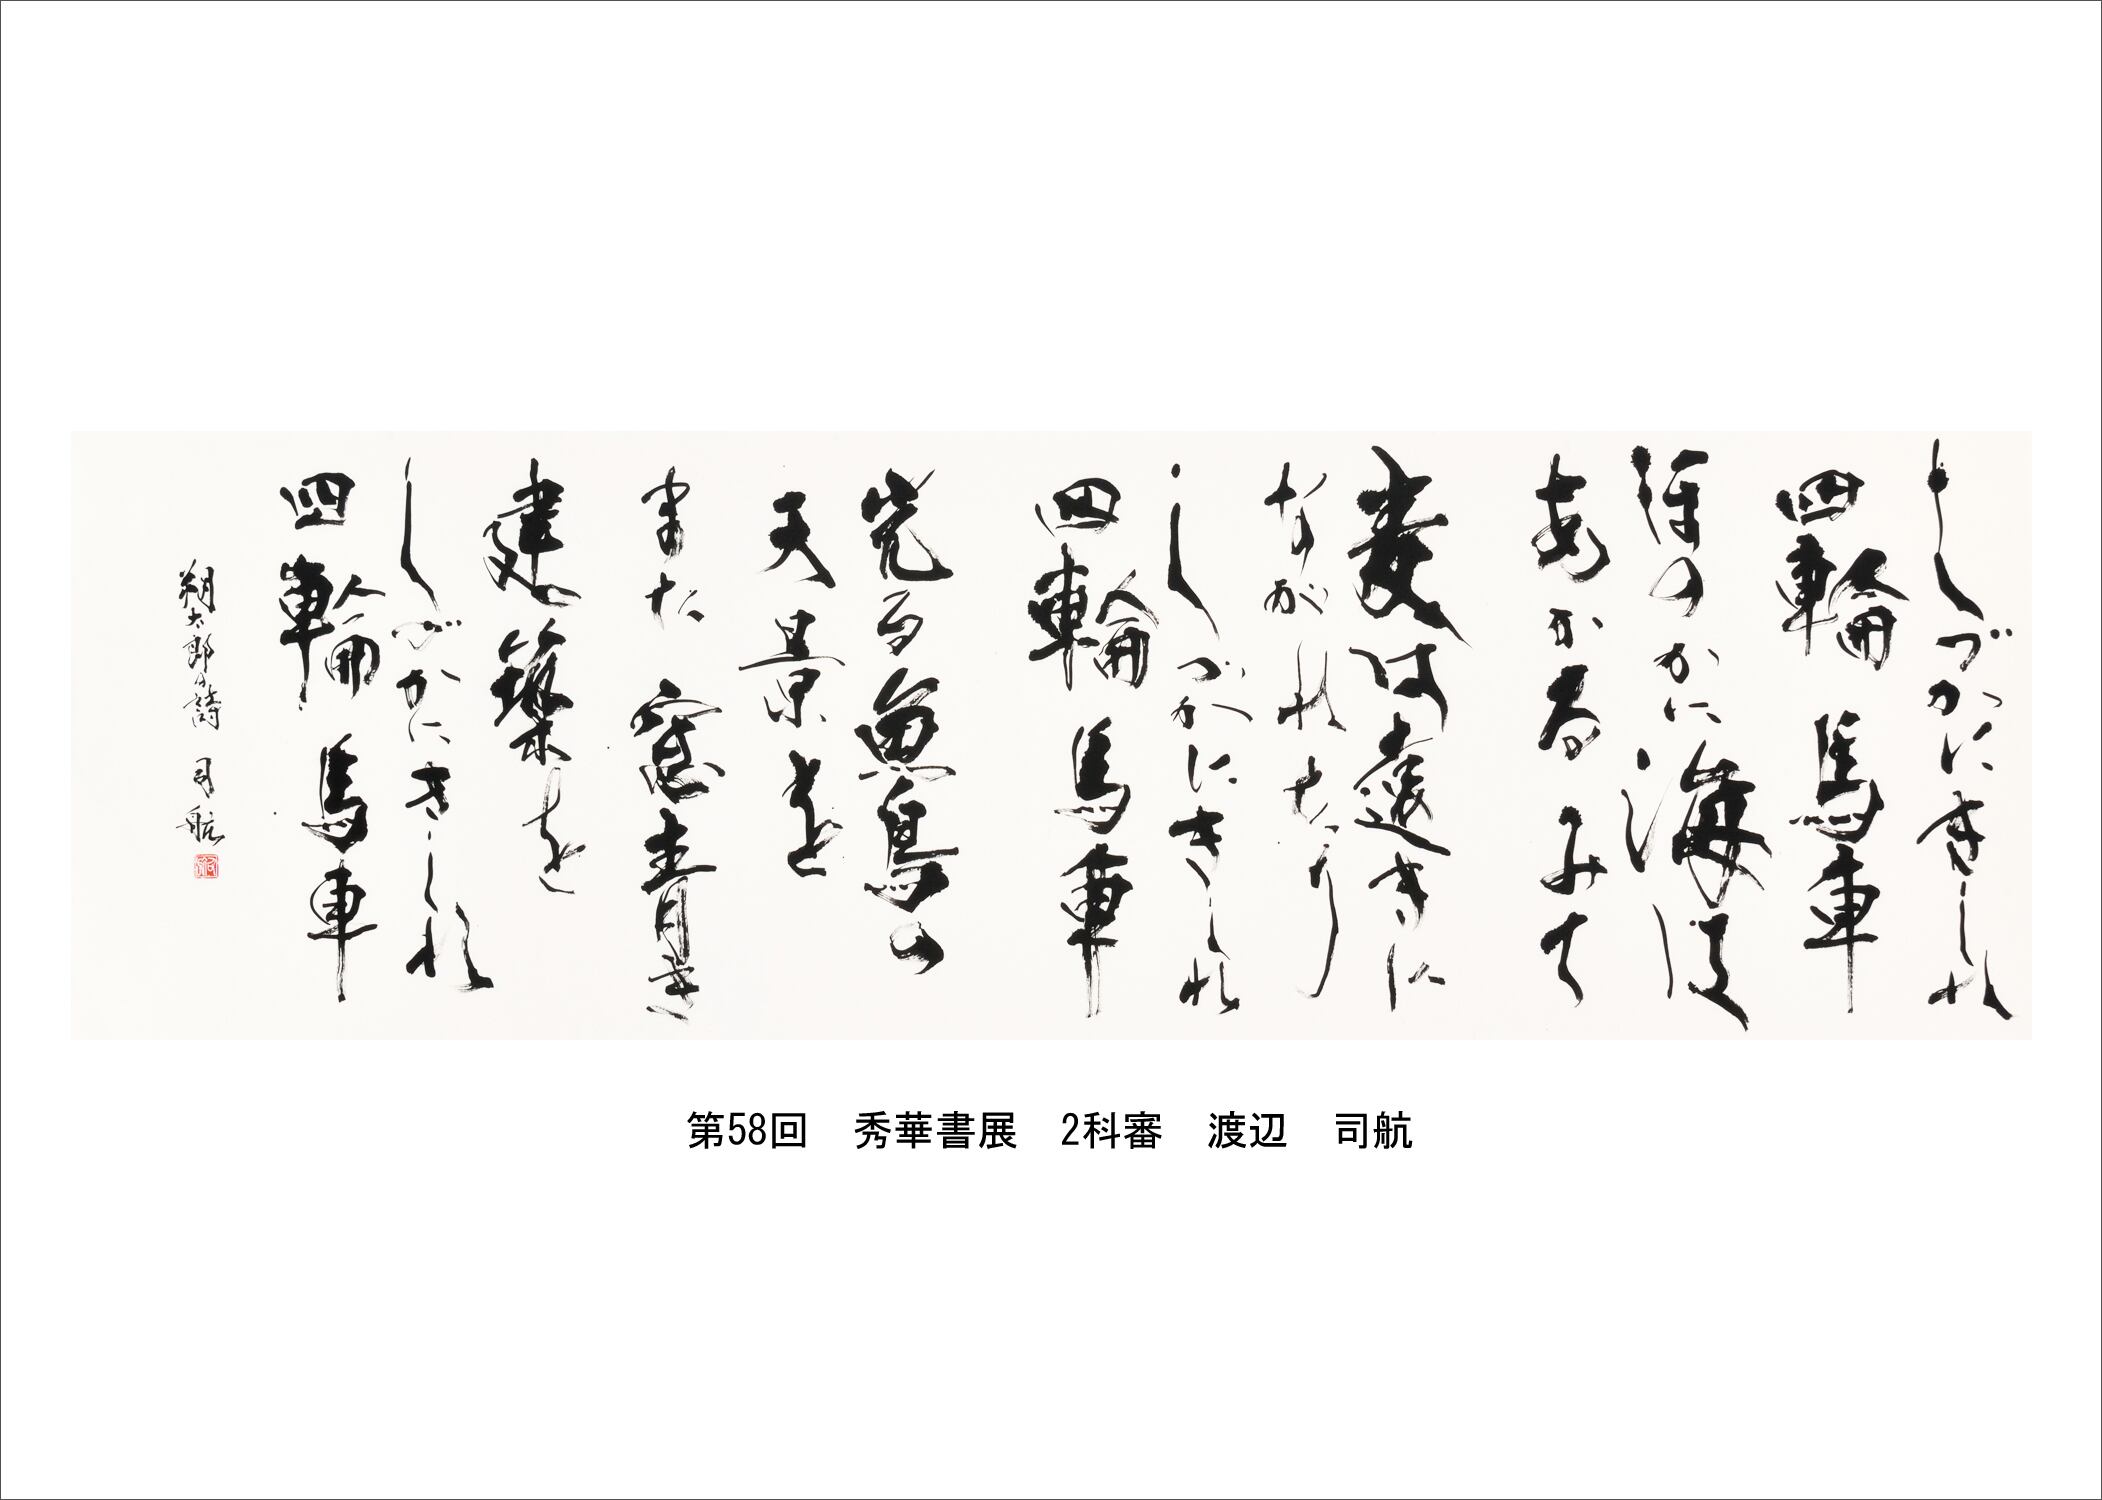 しづかにきしれ
四輪馬車
ほのかに海は
あかるみて
麦は遠きに
ながれたり
しづかにきしれ
四輪馬車
光る魚鳥の
天景を
また窓青き
建築を
しづかにきしれ
四輪馬車
朔太郎の詩 司航
第58回 秀華書展 2科審 渡辺 司航